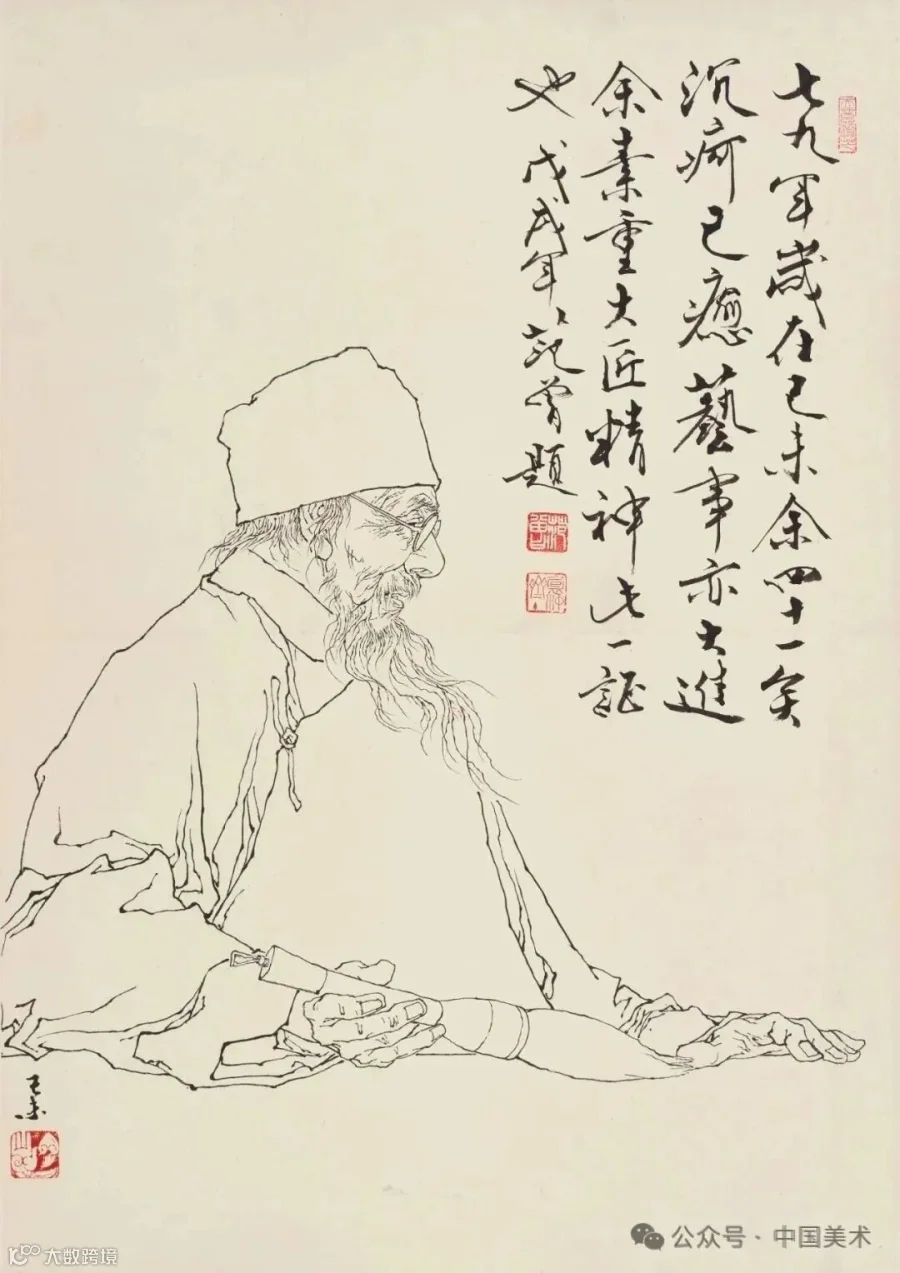 七九年歲在己未余四十一矣
沉疴已癒藝事亦大進
余素重大匠精神此一証
也 戊戌年 范曾題
范曾
己未
公众号·中国美术
大数跨境